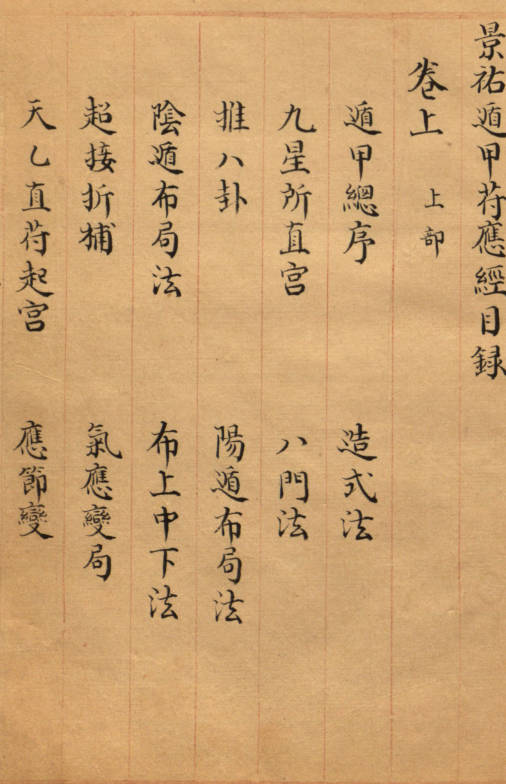 景祐遁甲苻應經目録
卷上 上部
遁甲總序 造式法
九星所直宫 八門法
推八卦 陽遁布局法
陰遁布局法 布上中下法
超接折補 氣應變局
天乙直苻起宫 應節變